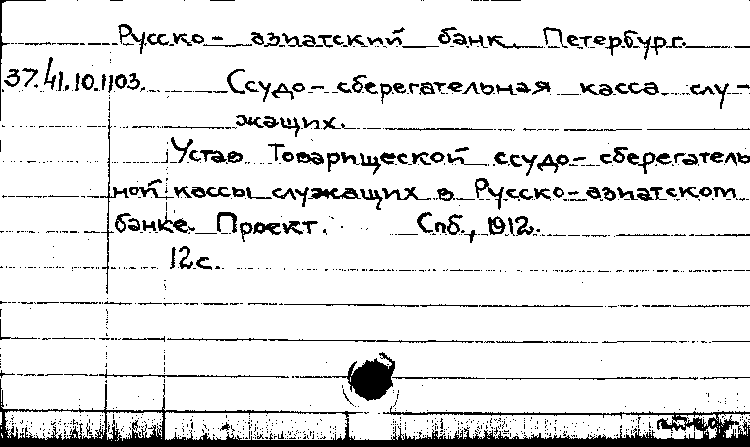 Русско-азиатский банк. Петербург.
37.41.10.1103. Ссудо-сберегательная касса слу-
жащих.
Устав Товарищеской ссудо-сберегатель
ной кассы служащих в Русско-азиатском
банке. Проект. Спб., 1912.
12 с.